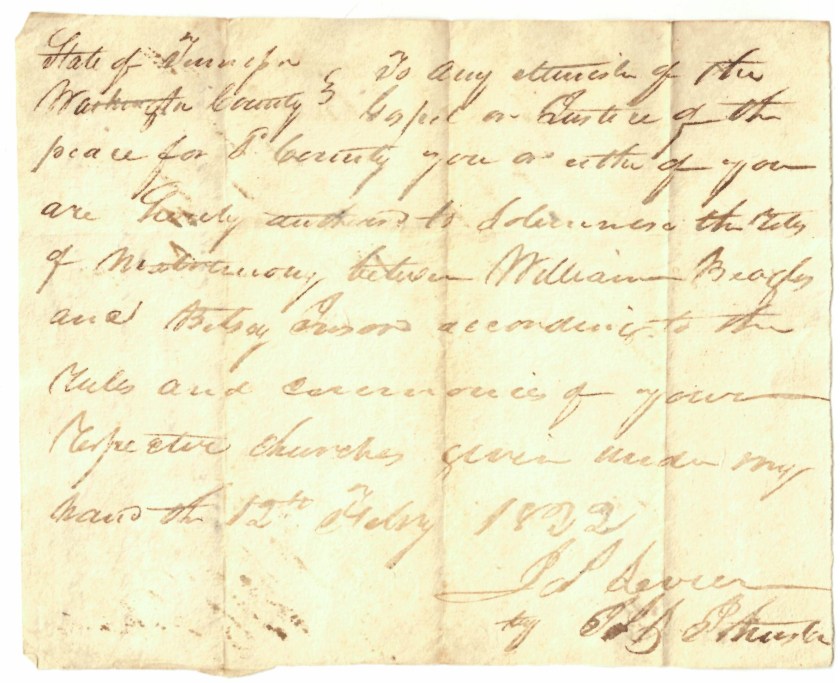 State of Tennessee
Washington County } To any Minister of the
Gospel or Justice of the
peace for Sd County you or either of you
are hereby authorisd to Solemnise the Rites
of Matrimony between William Beagles
and Betsey according to the
rules and ceremonies of your
respective churches given under my
hand the 12th Feby 1822
J Sevier
by